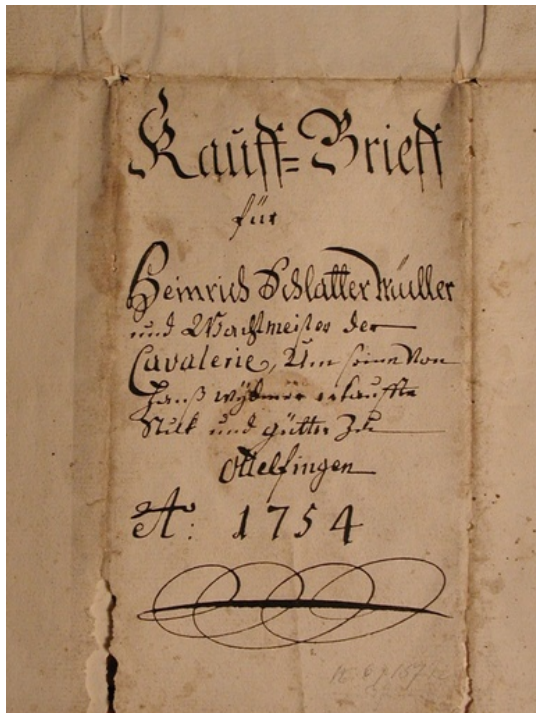 Kauff=Brieff
für
Heinrich Schlatter Müller
und Wachtmeister der
Cavalerie, Um seine von
Hanß Wÿdmer erkauffte
Stuk und gütter Zu
Ottelfingen
Aº: 1754